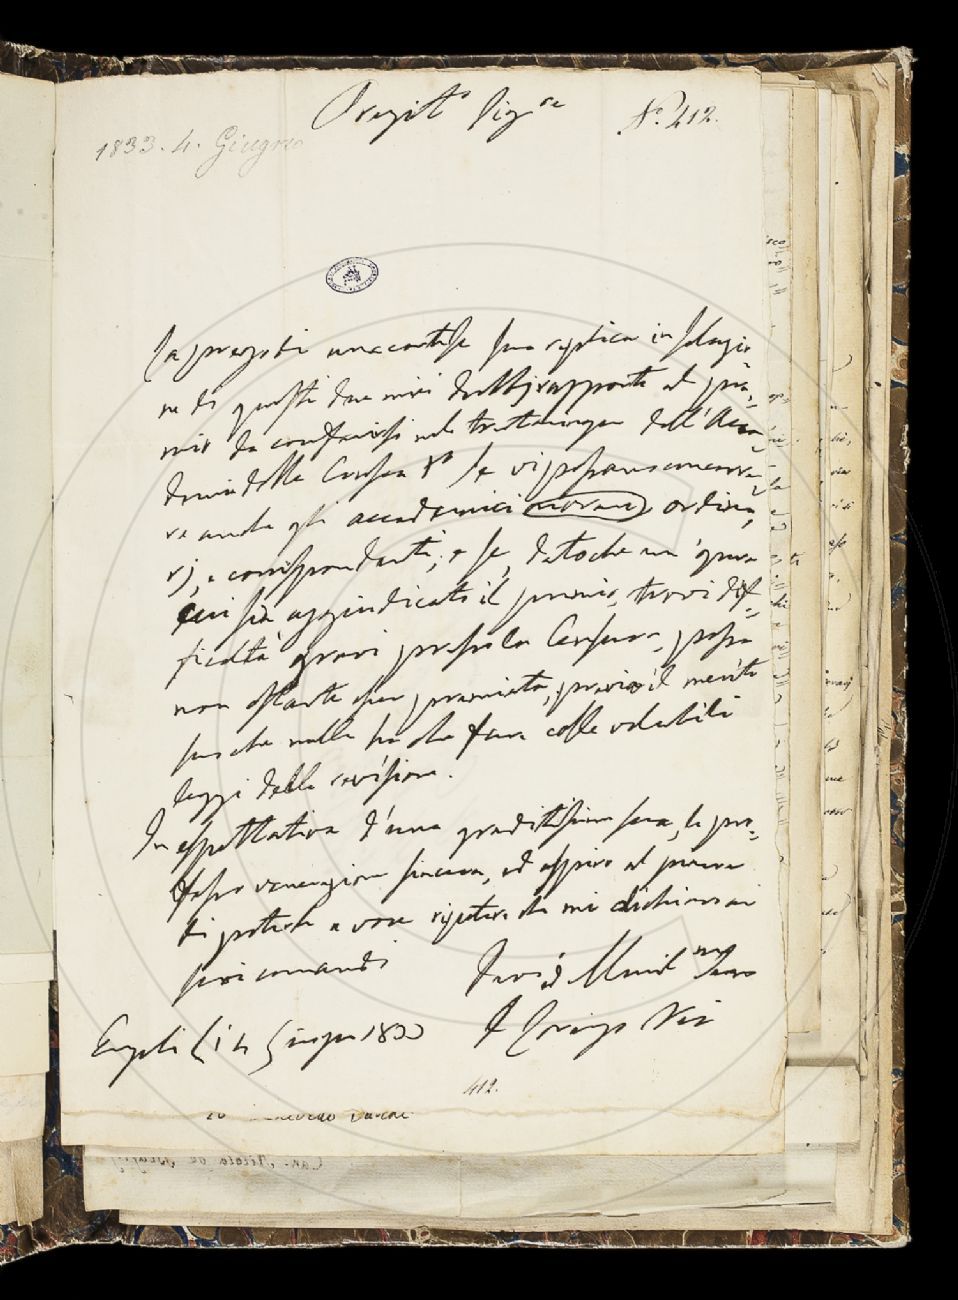 Pregit.º Sig.re
N.º 412.
1833. 4. Giugno
La prego di una cortese sua replica in soluzio
ne di questi due miei dubbj rapporto al pre,
mio da conferirsi nel dell'Acca
demia della Crusca Xº Se vi possano concorre,
re anche gli accademici ordina,
rj, e corrispondenti; e se, dato che un' opera
cui sia aggiudicato il premio, trovi dif,
ficoltà gravi presso la Censura, possa
non ostante esser premiata, previo il merito
suo che nulla ha che fare colle volubili
leggi della revisione.
In espettativa d'una graditissima sua, le pro,
fesso venerazione sincera, ed aspiro al piacere
di poterle a voce ripetere che mi dichiaro ai
suoi comandi
Suo Umil.mo Servo
Empoli (i 4 Giugno 1833
412.